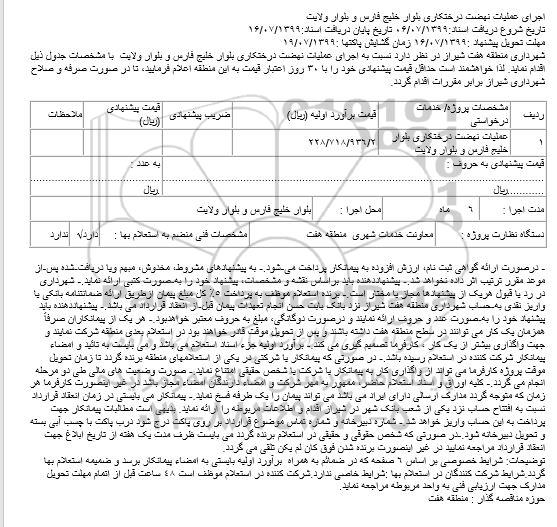 اجرای عملیات نهضت درختکاری بلوار خلیج فارس و بلوار ولایت
تاریخ شروع دریافت اسناد: ۰۶/۰۷/۱۳۹۹ تاریخ پایان دریافت اسناد: ۱۶/۰۷/۱۳۹۹
مهلت تحویل پیشنهاد: ۱۶/۰۷/۱۳۹۹ زمان گشایش پاکتها: ۱۹/۰۷/۱۳۹۹
شهرداری منطقه هفت شیراز در نظر دارد نسبت به اجرای عملیات نهضت درختکاری بلوار خلیج فارس و بلوار ولایت با مشخصات جدول ذیل
اقدام نماید. لذا خواهشمند است حداقل قیمت پیشنهادی خود را با ۳۰ روز اعتبار قیمت به این منطقه اعلام فرمایید، تا در صورت صرفه و صلاح
شهرداری شیراز برابر مقررات اقدام گردد.
ردیف مشخصات پروژه/ خدمات درخواستی قیمت برآورد اولیه (ریال) ضریب پیشنهادی قیمت پیشنهادی (ریال) ملاحظات
۱ عملیات نهضت درختکاری بلوار خلیج فارس و بلوار ولایت ۲۲۸/۷۱۸/۹۳۶/۲
قیمت پیشنهادی به حروف : به عدد :
............ریال ریال
مدت اجرا : ۶ ماه محل اجرا : بلوار خلیج فارس و بلوار ولایت
دستگاه نظارت پروژه : معاونت خدمات شهری منطقه هفت مشخصات فنی منضم به استعلام بها : دارد√ ندارد
- درصورت ارائه گواهی ثبت نام، ارزش افزوده به پیمانکار پرداخت می‌شود.ـ به پیشنهادهای مشروط، مخدوش، مبهم ویا دریافت‌شده پس‌از
موعد مقرر ترتیب اثر داده نخواهد شد.ـ پیشنهاددهنده باید براساس نقشه و مشخصات، پیشنهاد خود را به‌صورت کتبی ارائه نماید.ـ شهرداری
در رد یا قبول هریک از پیشنهادها مجاز یا مختار است.ـ برنده استعلام موظف به پرداخت ۵٪ کل مبلغ پیمان ازطریق ارائه ضمانتنامه بانکی یا
واریز نقدی به‌حساب شهرداری منطقه هفت شیراز نزد بانک بابت حسن انجام تعهدات پیمان قبل از انعقاد قرارداد می باشد.ـ پیشنهاددهنده باید
پیشنهاد خود را به‌صورت عدد و حروف ارائه نمایند و درصورت دوگانگی، مبلغ به حروف معتبر خواهدبود.ـ هر یک از پیمانکاران صرفاً
همزمان یک کار می توانند در سطح منطقه هفت داشته باشند و پس از تحویل موقت قادر خواهند بود در استعلام بعدی منطقه شرکت نمایند و
جهت واگذاری بیشتر از یک کار ، کارفرما تصمیم گیری می کند.ـ برآورد اولیه جزء اسناد استعلام می باشد و می بایست به تائید و امضاء
پیمانکار شرکت کننده در استعلام رسیده باشد.ـ در صورتی که پیمانکار یا شرکتی در یکی از استعلامهای منطقه برنده گردد تا زمان تحویل
موقت پروژه کارفرما می تواند از واگذاری کار به پیمانکار یا شرکت یا شخص حقیقی امتناع نماید.ـ صورت وضعیت های مالی طی دو مرحله
انجام می گردد.ـ کلیه اوراق و اسناد استعلام حاضر، ممهور به مهر شرکت و امضاء دارندگان امضاء مجاز باشد در غیر اینصورت کارفرما هر
زمان که متوجه گردد مدارک ارسالی دارای ایراد می باشد می تواند پیمان را یک طرفه فسخ نماید.ـ پیمانکار می بایستی در زمان انعقاد قرارداد
نسبت به افتتاح حساب نزد یکی از شعب بانک شهر در شیراز اقدام و اطلاعات مربوطه را ارائه نماید. بدیهی است مطالبات پیمانکار جهت
پرداخت به این حساب واریز خواهد شد.ـ شماره دبیرخانه و شماره تماس موضوع قرارداد بر روی پاکت درج شود درب پاکت با چسب آبی بسته
و تحویل دبیرخانه شود.ـدر صورتی که شخص حقوقی و حقیقی در استعلام برنده گردد می بایست ظرف مدت یک هفته از تاریخ ابلاغ جهت
انعقاد قرارداد مراجعه نمایید در غیر اینصورت برنده شدن فوق کان لم یکن تلقی می گردد.
توضیحات: شرایط خصوصی بر اساس ۶ صفحه که در ضمائم به همراه برآورد اولیه بایستی به امضاء پیمانکار برسد و ضمیمه استعلام بها
گردد.شرایط شرکت کنندگان در استعلام بها :شرایط خاصی ندارد.شرکت کننده در استعلام موظف است ۴۸ ساعت قبل از اتمام مهلت تحویل
مدارک جهت ارزیابی فنی به واحد مربوطه مراجعه نماید.
حوزه مناقصه گذار : منطقه هفت